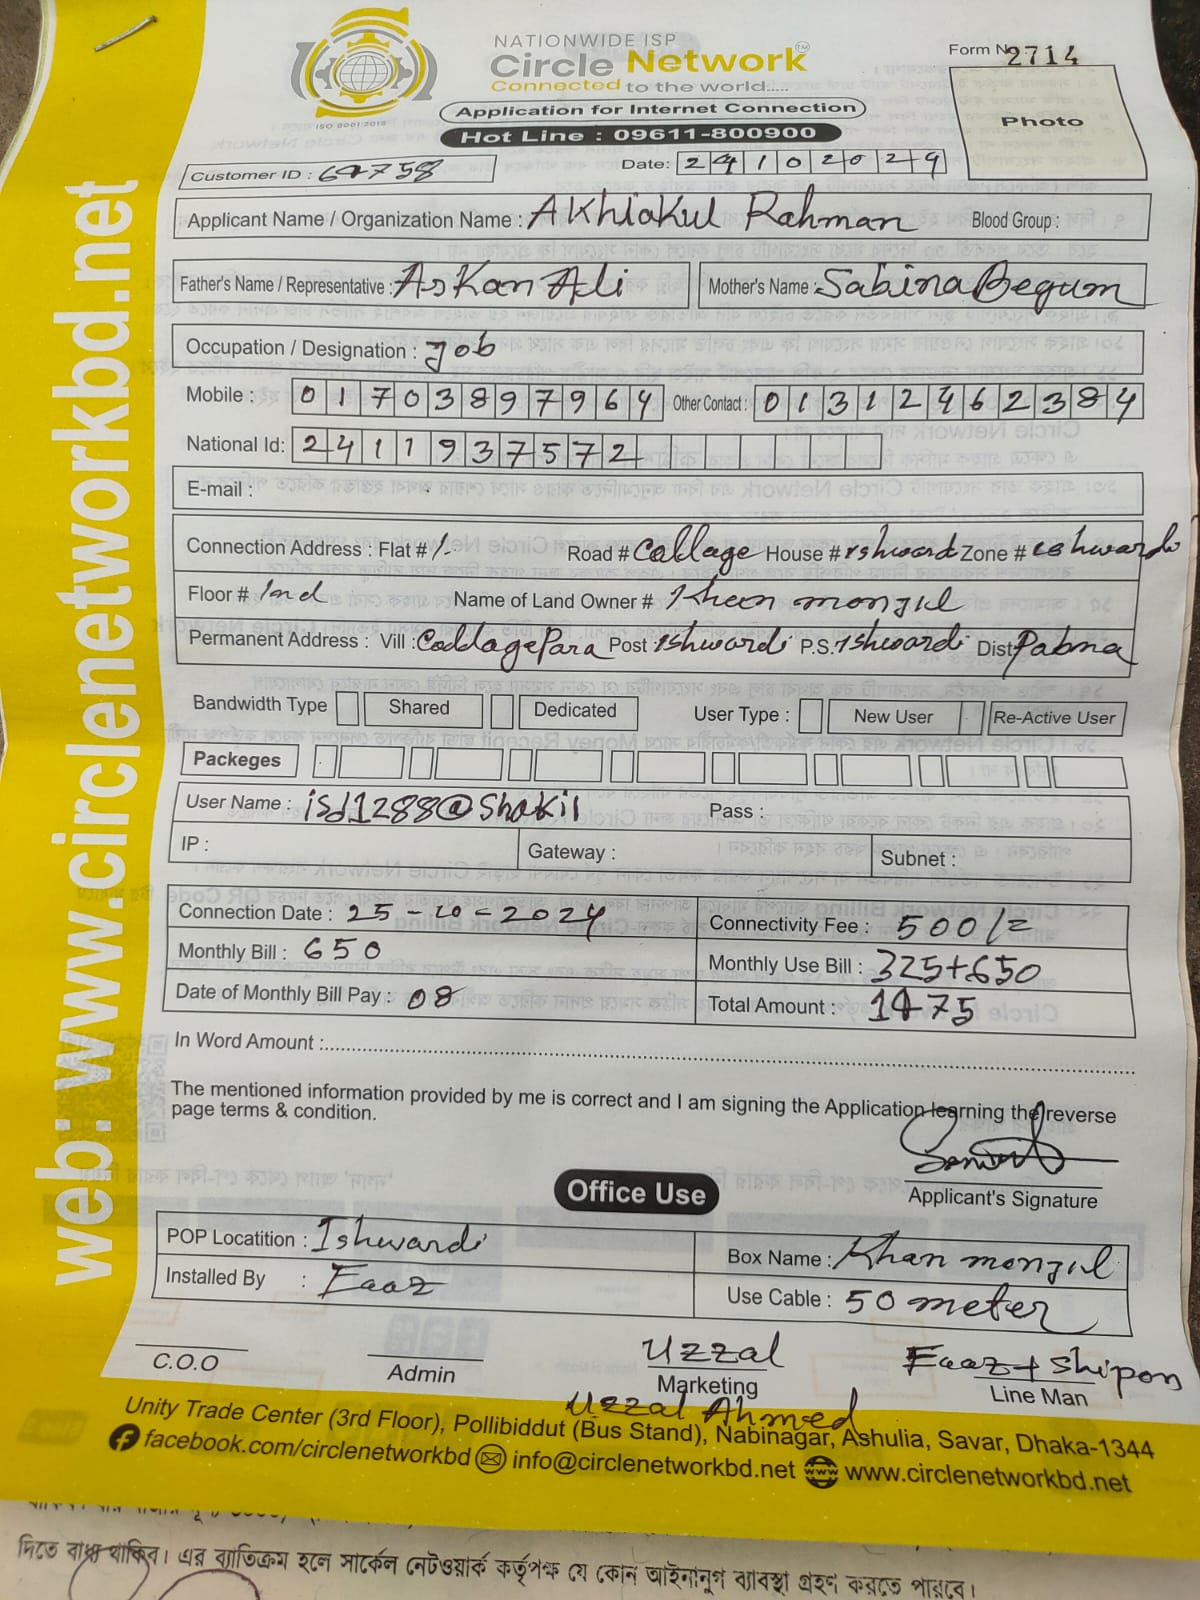 NATIONWIDE ISP
Circle Network™
Connected to the world.....
ISO 9001:2015
Form No. 2714
Photo
Application for Internet Connection
Hot Line : 09611-800900
Customer ID : 64758
Date: 24102024
Applicant Name / Organization Name : Akhlakul Rahman Blood Group :
Father's Name / Representative : Askan Ali Mother's Name : Sabina Begum
Occupation / Designation : Job
Mobile : 01703897964 Other Contact : 01312462384
National Id: 2411937572
E-mail :
Connection Address : Flat # 1- Road # Callage House # Ishwardi Zone # Ishwardi
Floor # 1nd Name of Land Owner # Khan monzil
Permanent Address : Vill : CollagePara Post Ishwardi P.S. Ishwardi Dist Pabna
Bandwidth Type Shared Dedicated User Type : New User Re-Active User
Packeges
User Name : isd1288@Shakil Pass :
IP : Gateway : Subnet :
Connection Date : 25-10-2024 Connectivity Fee : 500/=
Monthly Bill : 650 Monthly Use Bill : 325+650
Date of Monthly Bill Pay : 08 Total Amount : 1475
In Word Amount :
The mentioned information provided by me is correct and I am signing the Application learning the reverse
page terms & condition.
Applicant's Signature
Office Use
POP Locatition : Ishwardi Box Name : Khan monzil
Installed By : Faaz Use Cable : 50 meter
Uzzal Faaz + Shipon
C.O.O Admin Marketing Line Man
Uzzal Ahmed
Unity Trade Center (3rd Floor), Pollibiddut (Bus Stand), Nabinagar, Ashulia, Savar, Dhaka-1344
facebook.com/circlenetworkbd info@circlenetworkbd.net www.circlenetworkbd.net
web: www.circlenetworkbd.net
দিতে বাধ্য থাকিব। এর ব্যতিক্রম হলে সার্কেল নেটওয়ার্ক কর্তৃপক্ষ যে কোন আইনানুগ ব্যাবস্থা গ্রহণ করতে পারবে।